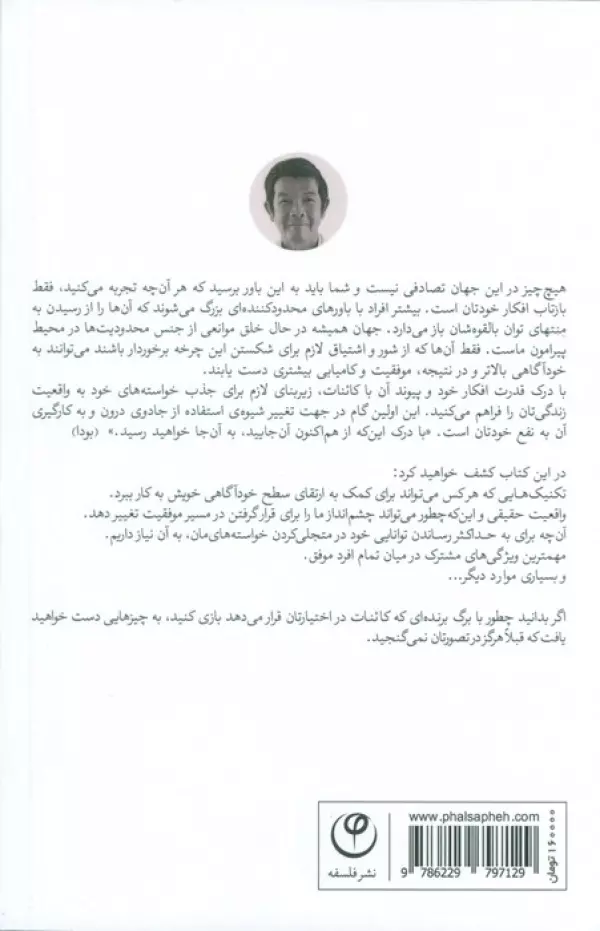 هیچ‌چیز در این جهان تصادفی نیست و شما باید به این باور برسید که هر آن‌چه تجربه می‌کنید، فقط
بازتاب افکار خودتان است. بیشتر افراد با باورهای محدودکننده‌ای بزرگ می‌شوند که آن‌ها را از رسیدن به
مِنتهای توان بالقوه‌شان باز می‌دارد. جهان همیشه در حال خلق موانعی از جنس محدودیت‌ها در محیط
پیرامون ماست. فقط آن‌ها که از شور و اشتیاق لازم برای شکستن این چرخه برخوردار باشند می‌توانند به
خودآگاهی بالاتر و در نتیجه، موفقیت و کامیابی بیشتری دست یابند.
با درک قدرت افکار خود و پیوند آن با کائنات، زیربنای لازم برای جذب خواسته‌های خود به واقعیت
زندگی‌تان را فراهم می‌کنید. این اولین گام در جهت تغییر شیوه‌ی استفاده از جادوی درون و به کارگیری
آن به نفع خودتان است. «با درک این‌که از هم‌اکنون آن‌جایید، به آن‌جا خواهید رسید.» (بودا)
در این کتاب کشف خواهید کرد:
تکنیک‌هـایی که هرکس می‌تواند برای کمک به ارتقای سطح خودآگاهی خویش به کار ببرد.
واقعیت حقیقی و این‌که‌چطور می‌تواند چشم‌انداز ما را برای قرار گرفتن در مسیر موفقیت تغییر دهد.
آن‌چه برای به حـداکثر رساندن توانایی خود در متجلی‌کردن خواسته‌های‌مان، به آن نیاز داریم.
مهمترین ویژگی‌های مشترک در میان تمام افرد موفق.
و بسیاری موارد دیگر...
اگر بدانید چطور با برگ برنده‌ای که کائنات در اختیارتان قرار می‌دهد بازی کنید، به چیزهایی دست خواهید
یافت که قبلاً هرگز در تصورتان نمی‌گنجید.
www.phalsapheh.com
۱۶۰۰۰۰ تومان
9 786229 797129
نشر فلسفه